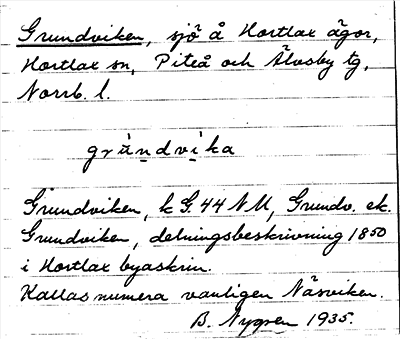 Grundviken, sjö å Hortlax ägor,
Hortlax sn, Piteå och Älvsby tg,
Norrb. l.
grùndvìka
Grundviken, k G. 44 NU, Grundv. ek.
Grundviken, delningsbeskrivning 1850
i Hortlax byaskrin.
Kallas numera vanligen Näsviken.
B. Nygren 1935.